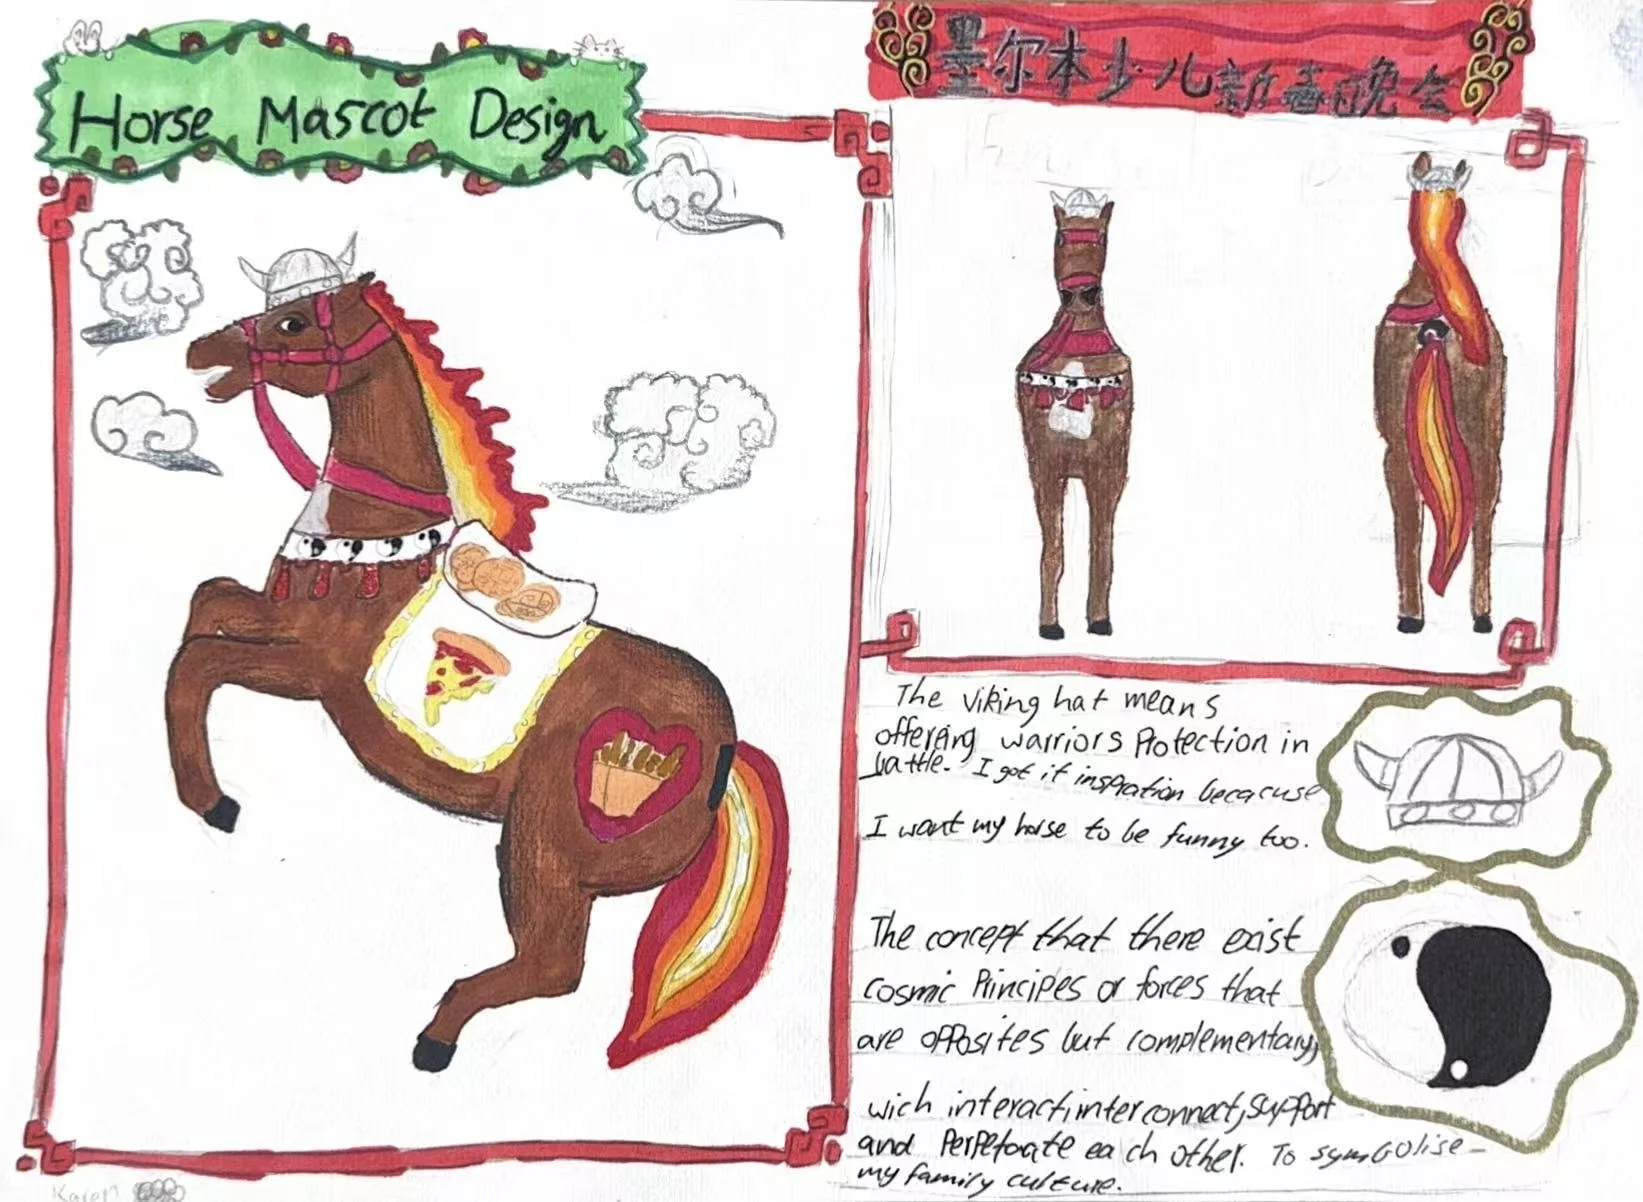 Horse Mascot Design
墨尔本少儿新春晚会
The Viking hat means
offering warriors Protection in
battle. I got it inspration becacuse
I want my horse to be funny too.
The concept that there exist
cosmic Principes or forces that
are opposites but complementary,
wich interact, interconnect, support
and Perpetorate each other. To symbolise
my family culture.
Karen